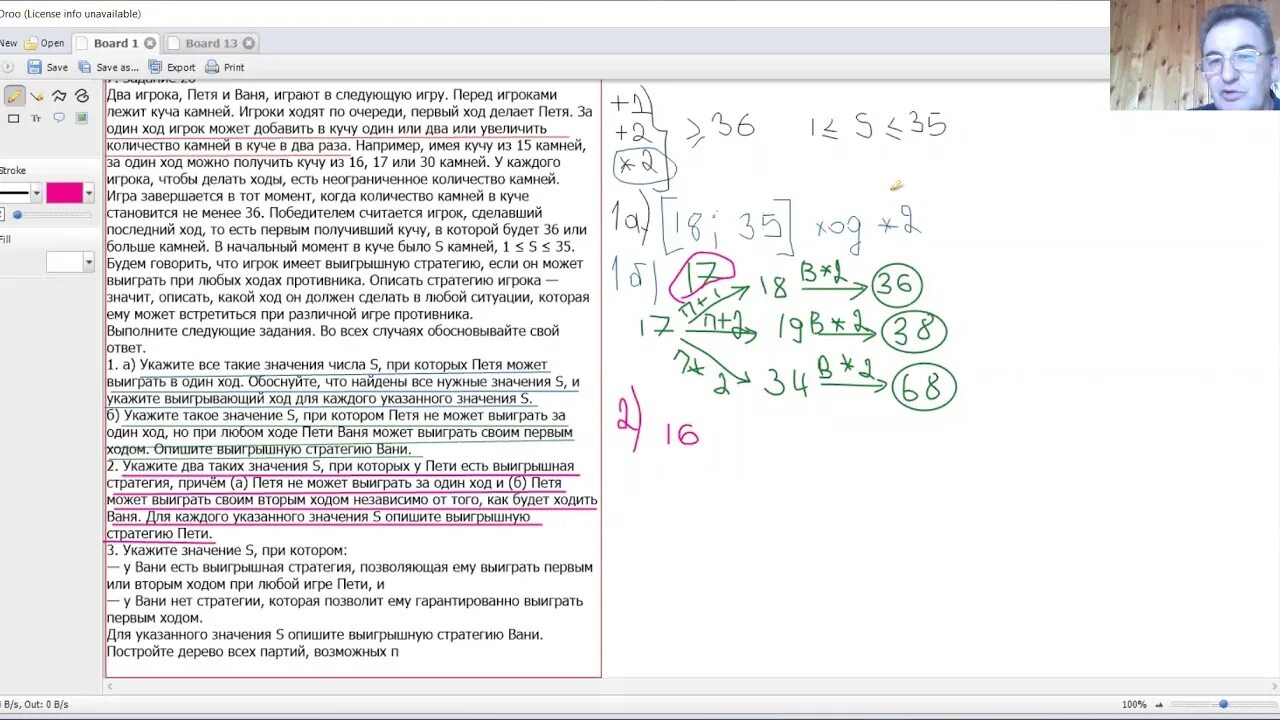 Droo (License info unavailable)
New Open Board 1 Board 13
Save Save as... Export Print
Stroke
Fill
Два игрока, Петя и Ваня, играют в следующую игру. Перед игроками
лежит куча камней. Игроки ходят по очереди, первый ход делает Петя. За
один ход игрок может добавить в кучу один или два или увеличить
количество камней в куче в два раза. Например, имея кучу из 15 камней,
за один ход можно получить кучу из 16, 17 или 30 камней. У каждого
игрока, чтобы делать ходы, есть неограниченное количество камней.
Игра завершается в тот момент, когда количество камней в куче
становится не менее 36. Победителем считается игрок, сделавший
последний ход, то есть первым получивший кучу, в которой будет 36 или
больше камней. В начальный момент в куче было S камней, 1 ≤ S ≤ 35.
Будем говорить, что игрок имеет выигрышную стратегию, если он может
выиграть при любых ходах противника. Описать стратегию игрока —
значит, описать, какой ход он должен сделать в любой ситуации, которая
ему может встретиться при различной игре противника.
Выполните следующие задания. Во всех случаях обосновывайте свой
ответ.
1. а) Укажите все такие значения числа S, при которых Петя может
выиграть в один ход. Обоснуйте, что найдены все нужные значения S, и
укажите выигрывающий ход для каждого указанного значения S.
б) Укажите такое значение S, при котором Петя не может выиграть за
один ход, но при любом ходе Пети Ваня может выиграть своим первым
ходом. Опишите выигрышную стратегию Вани.
2. Укажите два таких значения S, при которых у Пети есть выигрышная
стратегия, причём (а) Петя не может выиграть за один ход и (б) Петя
может выиграть своим вторым ходом независимо от того, как будет ходить
Ваня. Для каждого указанного значения S опишите выигрышную
стратегию Пети.
3. Укажите значение S, при котором:
— у Вани есть выигрышная стратегия, позволяющая ему выиграть первым
или вторым ходом при любой игре Пети, и
— у Вани нет стратегии, которая позволит ему гарантированно выиграть
первым ходом.
Для указанного значения S опишите выигрышную стратегию Вани.
Постройте дерево всех партий, возможных п
+1
+2 ≥ 36 1 ≤ S ≤ 35
*2
1а) [18; 35] ход *2
1б) 17
п+1 18 В*2 36
17 п+2 19 В*2 38
п* 2 34 В*2 68
2) 16
0 B/s, Out: 0 B/s
100%